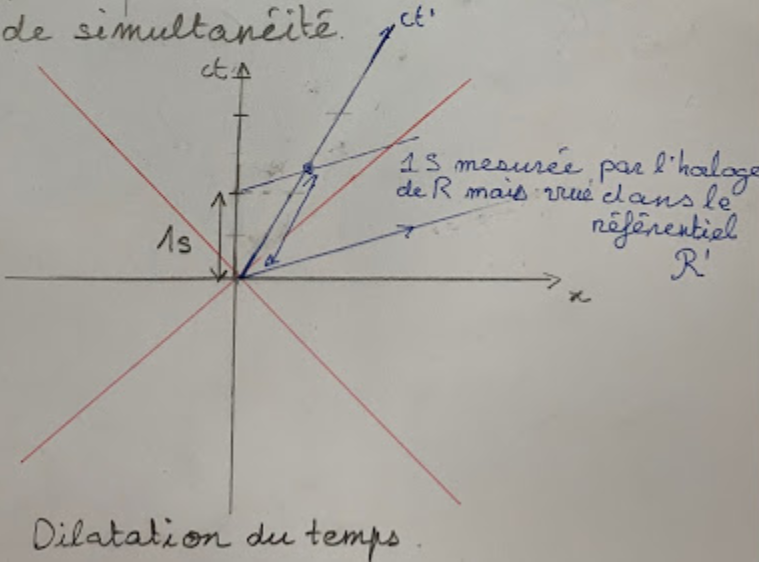 de simultanéité.
ct'
ct
1S mesurée par l'halage
de R mais vue dans le
référentiel
R'
1s
x
Dilatation du temps.